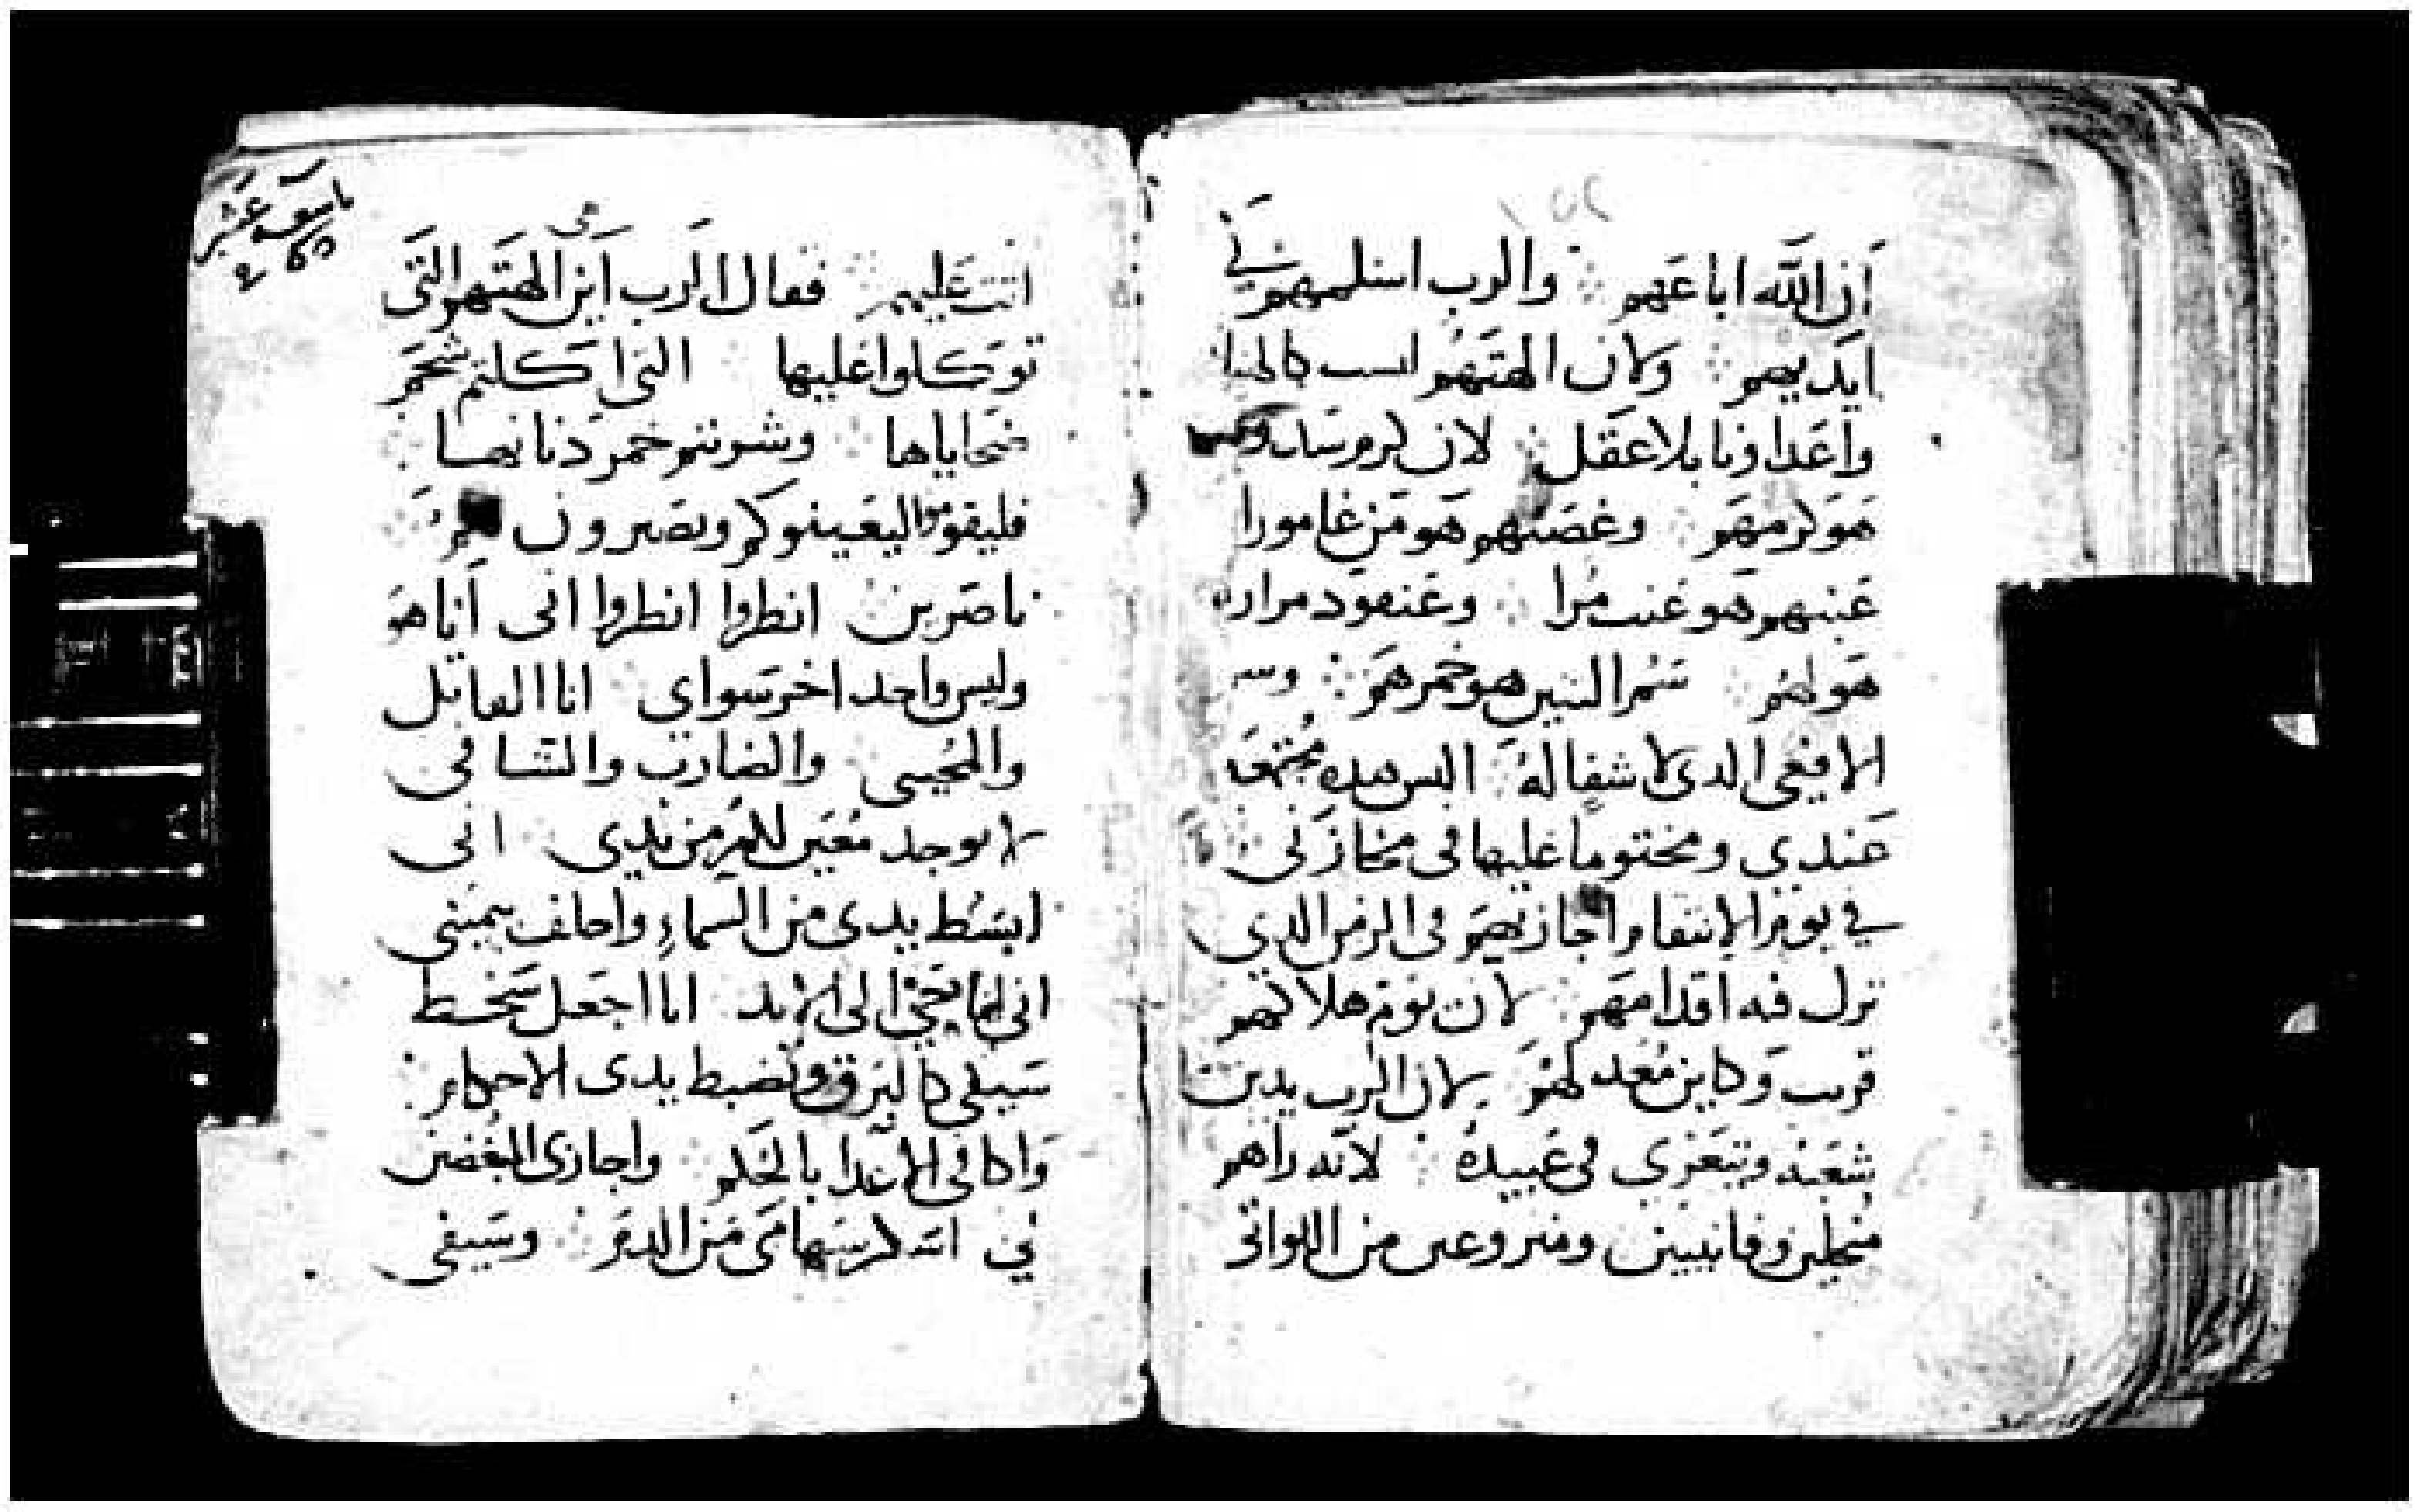 ان الله اباعهم والرب اسلمهم في
ايديهم ولان الهتهم لست كالهنا
واعداونا بلا عقل لان كرم سدوم
هو كرمهم وغصنهم هو من غامورا
عنبهم هو عنب مرا وعنقود مراره
هو لهم سم التنين هو خمرهم وسم
الافعى الدى لا شفا له اليس هده مجتمعه
عندي ومختوما عليها فى مخازنى
في يوم الانتقام اجازيهم فى الزمن الدي
تزل فيه اقدامهم لان يوم هلاكهم
قريب وكاين معد لهم لان الرب يدين
شعبه ويتعزى فى عبيده لانه راهم
منحلين وفانيين ومنزوعين من اللواتى
تاسعه عشر
انت عليهم فقال الرب اين الهتهم التى
توكلوا عليها التى اكلتم شحم
ضحاياها وشربتم خمر دنانها
فليقوموا ليعينوكم ويصيرون لكم
ناصرين انظروا انظروا انى انا هو
وليس واحد اخر سواي انا القاتل
والمحيى والضارب والشافى
لا يوجد معين لكم من يدى انى
ابسط يدى من السماء واحلف بيمينى
انى انا حي الى الابد انا اجعل سخط
سيفى كالبرق وتضبط يدى الاحكام
واكافى الاعدا بالحكم واجازى المبغضين
لي اسكر سهامى من الدم وسيفى